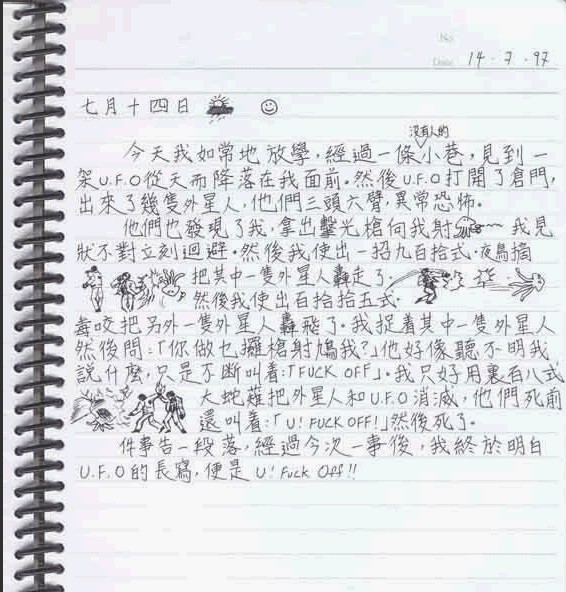 No
Date 14・7・97
七月十四日
沒有人的
今天我如常地放學，經過一條小巷，見到一
架U.F.O從天而降落在我面前。然後U.F.O打開了倉門，
出來了幾隻外星人，他們三頭六臂，異常恐怖。
他們也發現了我，拿出鐳光槍向我射 我見
狀不對立刻迴避。然後我使出一招九百拾式・夜鳥摘
把其中一隻外星人轟走了，
然後我使出百拾拾五式・
毒咬把另外一隻外星人轟飛了。我捉着其中一隻外星人
然後問：「你做乜攞槍射鳩我？」他好像聽不明我
說什麼，只是不斷叫着：「FUCK OFF」。我只好用裏百八式
大蛇薙把外星人和U.F.O消滅，他們死前
還叫着：「U! FUCK OFF!」然後死了。
件事告一段落，經過今次一事後，我終於明白
U.F.O的長寫，便是 U! Fuck Off!!